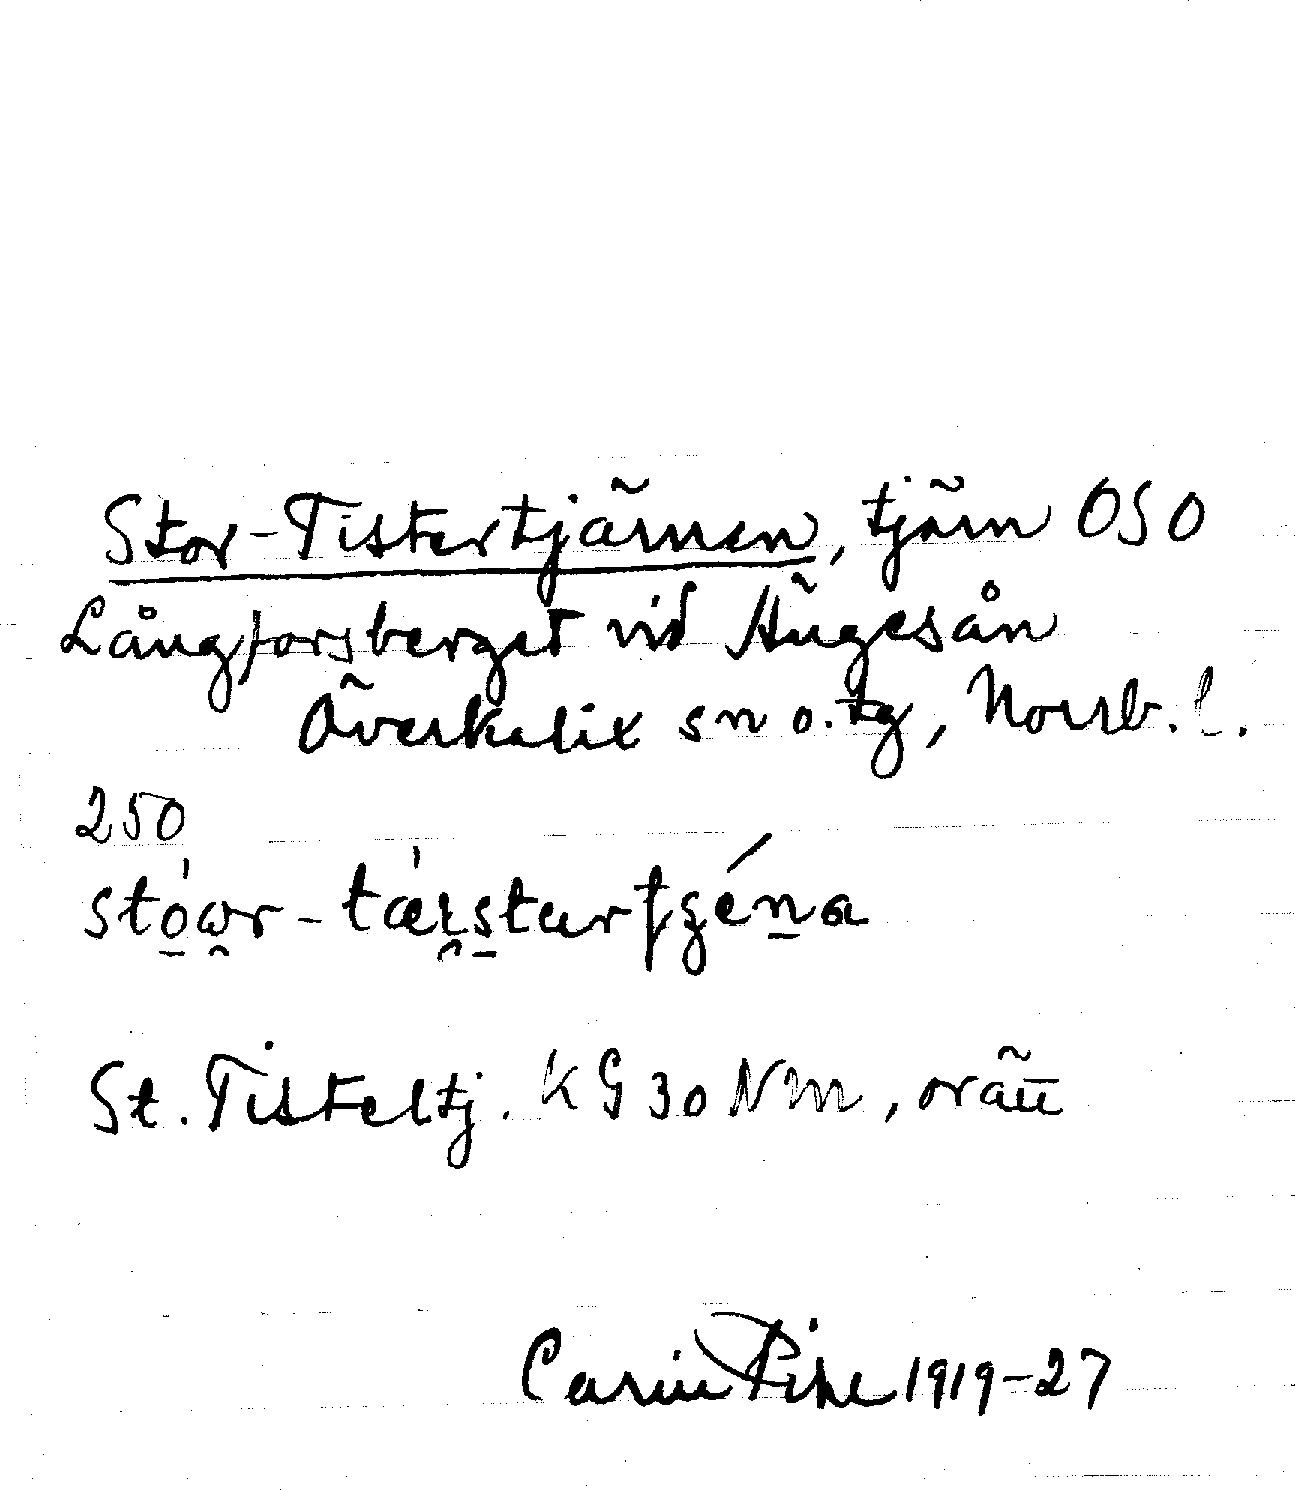 Stor-Tistertjärnen, tjärn OSO
Långforsberget vid Ängesån
Överkalix sn o. tg, Norrb. l.
250
St. Tisteltj. KG 30 Nm, orätt
Carin Pihl 1919-27